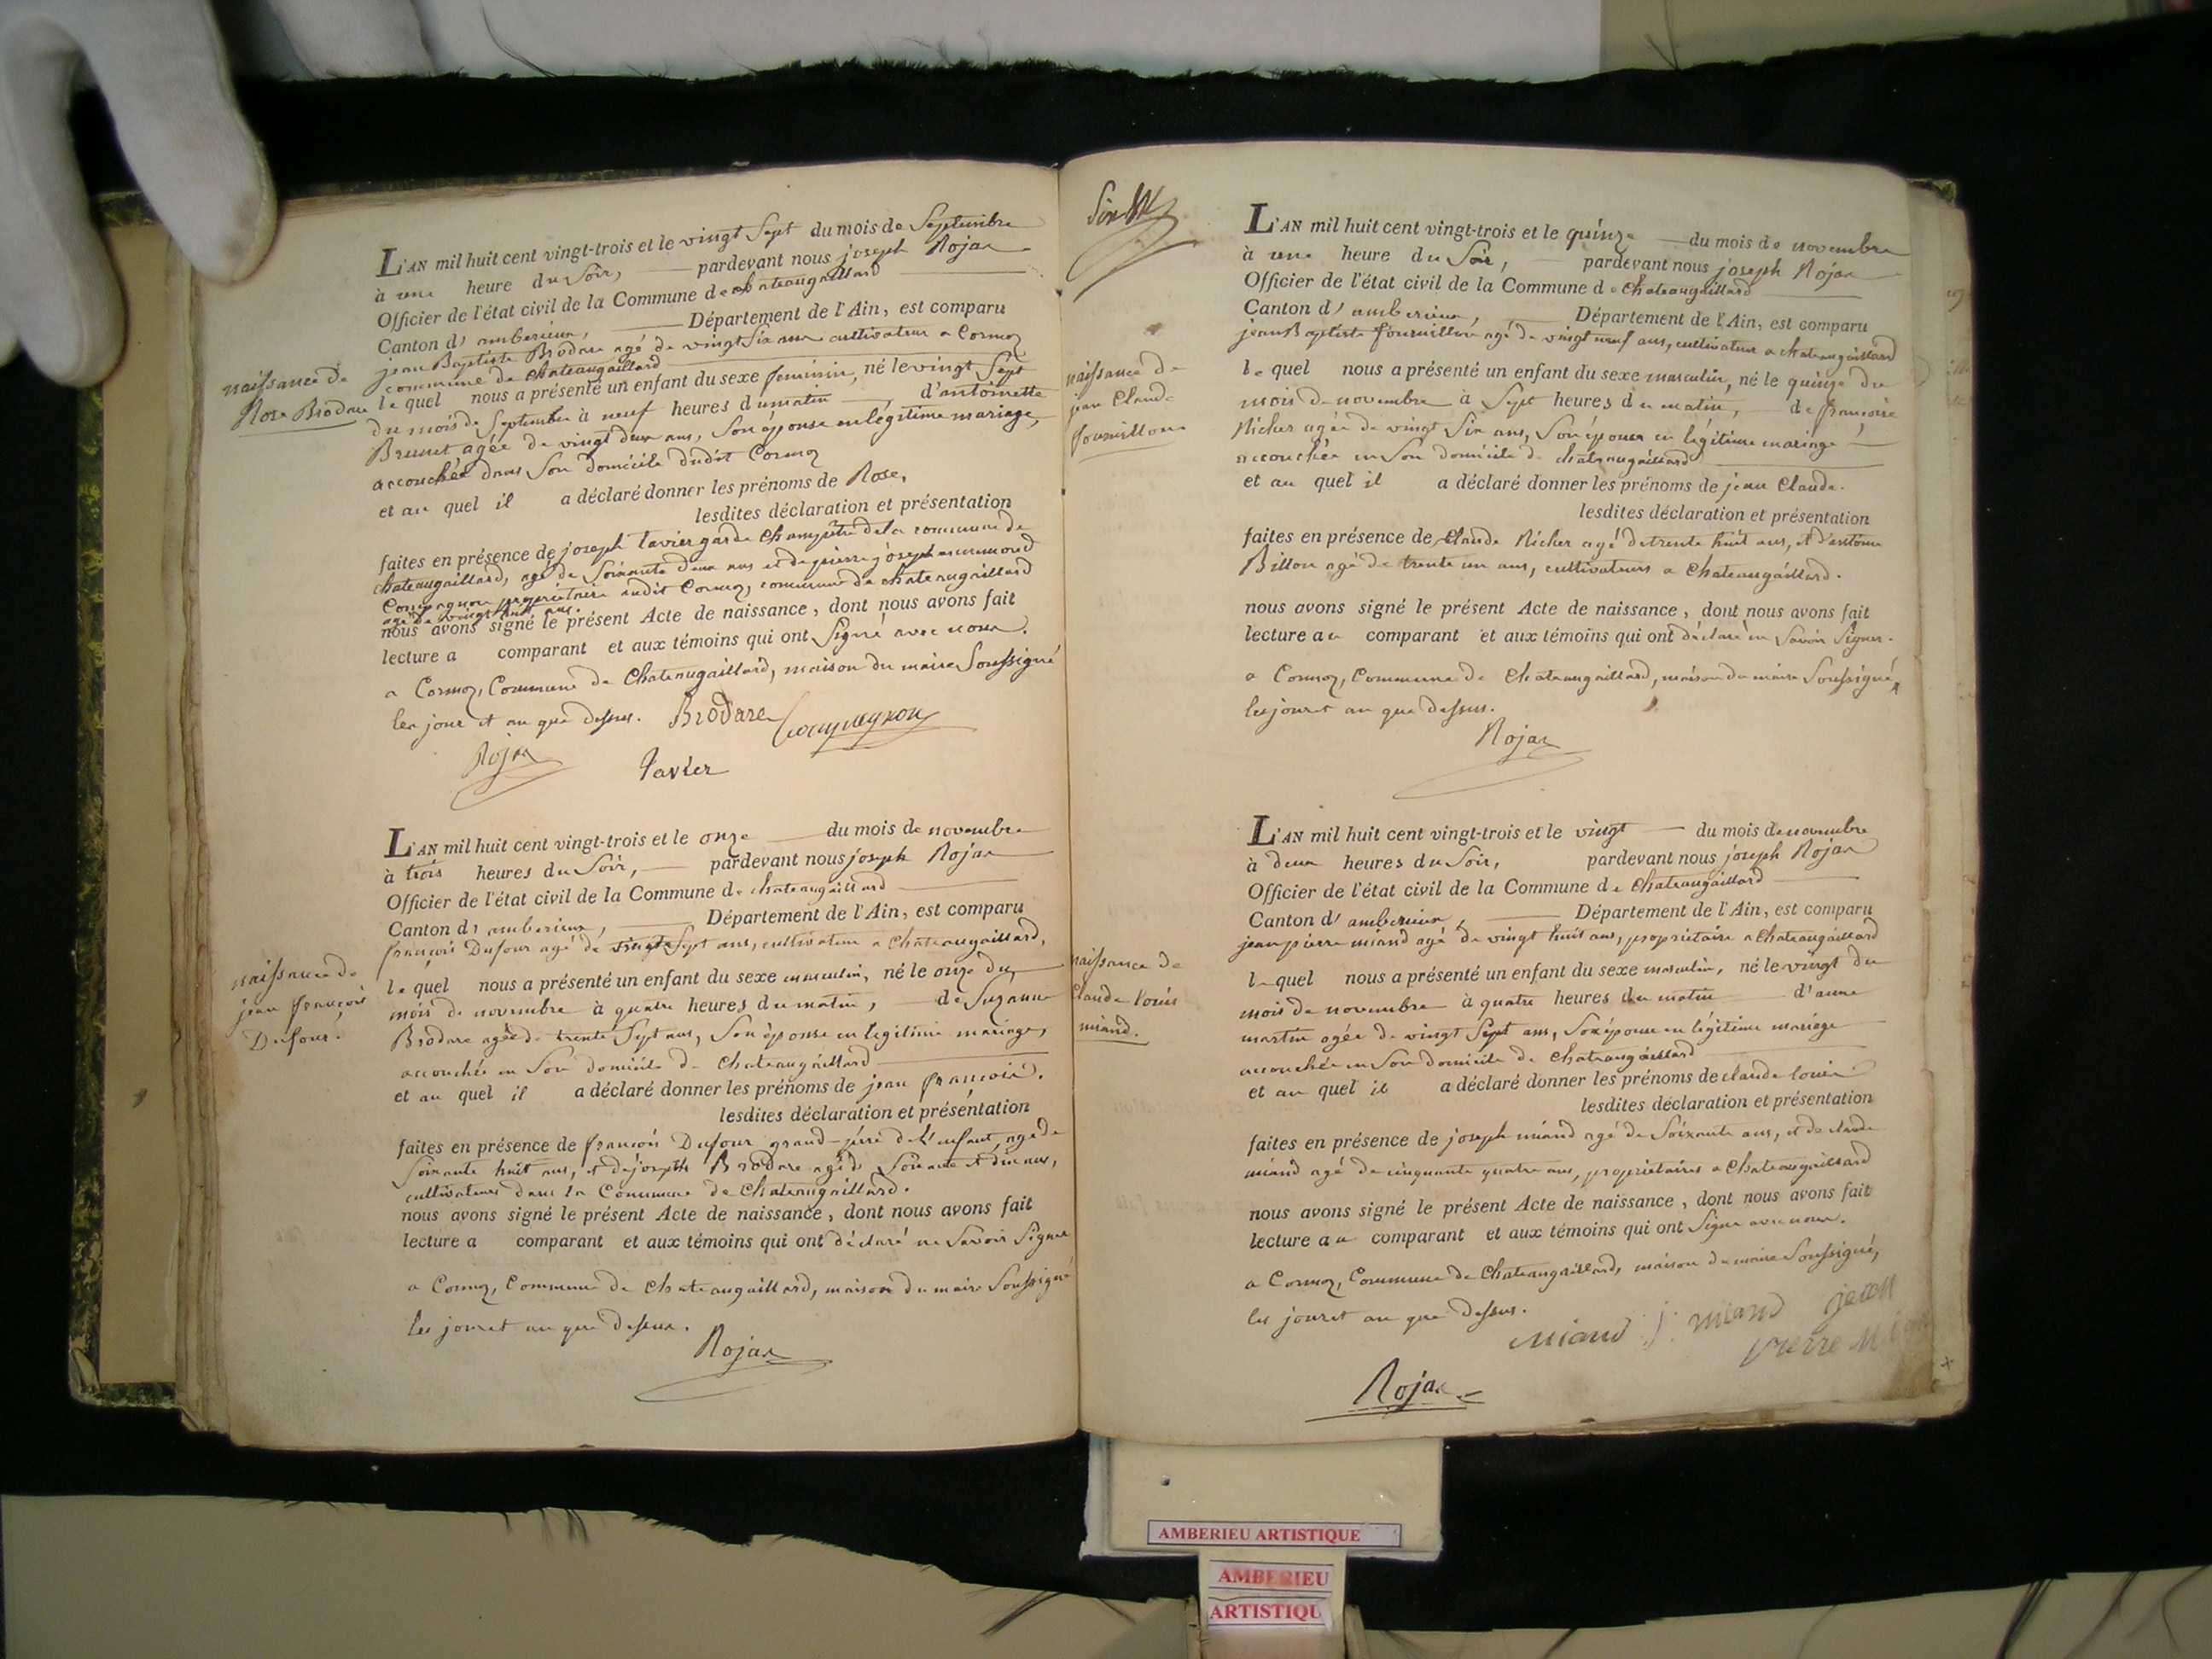 L'AN mil huit cent vingt-trois et le vingt Sept du mois de Septembre
à une heure du Soir, pardevant nous joseph Rojax
Officier de l'état civil de la Commune de chateaugaillard
Canton d'amberieux, Département de l'Ain, est comparu
jean Baptiste Brodare agé de vingt Six ans cultivateur a Cormoz
commune de chateaugaillard
naissance de
Rose Brodare
le quel nous a présenté un enfant du sexe feminin, né le vingt Sept
du mois de Septembre à neuf heures du matin, d'antoinette
Brunet agée de vingt deux ans, Son épouse en légitime mariage,
accouchée dans Son domicile dudit Cormoz
et au quel il a déclaré donner les prénoms de Rose,
lesdites déclaration et présentation
faites en présence de joseph Tavier garde champêtre de la commune de
chateaugaillard, agé de Soixante deux ans et de pierre joseph
Compagnon propriétaire audit Cormoz, commune de chateaugaillard
agé de vingt huit ans.
nous avons signé le présent Acte de naissance, dont nous avons fait
lecture a comparant et aux témoins qui ont Signé avec nous.
a Cormoz, Commune de Chateaugaillard, maison du maire Soussigné
les jour et an que dessus. Brodare Compagnon
Rojax Tavier
L'AN mil huit cent vingt-trois et le onze du mois de novembre
à trois heures du Soir, pardevant nous joseph Rojax
Officier de l'état civil de la Commune de chateaugaillard
Canton d'amberieux, Département de l'Ain, est comparu
françois Dufour agé de Sept ans, cultivateur a Chateaugaillard,
naissance de
jean françois
Dufour.
le quel nous a présenté un enfant du sexe masculin, né le onze du
mois de novembre à quatre heures du matin, de Suzanne
Brodare agée de trente Sept ans, Son épouse en legitime mariage,
accouchée en Son domicile de Chateaugaillard
et au quel il a déclaré donner les prénoms de jean françois.
lesdites déclaration et présentation
faites en présence de françois Dufour grand-père de l'enfant, agé de
Soixante huit ans, et de joseph Brodare agé de Soixante et dix ans,
cultivateurs dans la Commune de Chateaugaillard.
nous avons signé le présent Acte de naissance, dont nous avons fait
lecture a comparant et aux témoins qui ont déclaré ne Savoir Signer
a Cormoz, Commune de Chateaugaillard, maison du maire Soussigné
les jour et an que dessus.
Rojax
L'AN mil huit cent vingt-trois et le quinze du mois de novembre
à une heure du Soir, pardevant nous joseph Rojax
Officier de l'état civil de la Commune de Chateaugaillard
Canton d'amberieux, Département de l'Ain, est comparu
jean Baptiste fournillon agé de vingt neuf ans, cultivateur a chateaugaillard
naissance de
jean Claude
fournillon
le quel nous a présenté un enfant du sexe masculin, né le quinze du
mois de novembre à Sept heures du matin, de françoise
Richer agée de vingt Six ans, Son épouse en légitime mariage
accouchée en Son domicile de chateaugaillard
et au quel il a déclaré donner les prénoms de jean Claude.
lesdites déclaration et présentation
faites en présence de Claude Richer agé de trente huit ans, et d'antoine
Billon agé de trente un ans, cultivateurs a Chateaugaillard.
nous avons signé le présent Acte de naissance, dont nous avons fait
lecture au comparant et aux témoins qui ont déclaré ne Savoir Signer.
a Cormoz, Commune de Chateaugaillard, maison du maire Soussigné,
les jour et an que dessus.
Rojax
L'AN mil huit cent vingt-trois et le vingt du mois de novembre
à deux heures du Soir, pardevant nous joseph Rojax
Officier de l'état civil de la Commune de Chateaugaillard
Canton d'amberieux, Département de l'Ain, est comparu
jean pierre miand agé de vingt huit ans, propriétaire a chateaugaillard
naissance de
Claude louis
miand.
le quel nous a présenté un enfant du sexe masculin, né le vingt du
mois de novembre à quatre heures du matin d'anne
martin agée de vingt Sept ans, Son épouse en légitime mariage
accouchée en Son domicile de Chateaugaillard
et au quel il a déclaré donner les prénoms de claude louis
lesdites déclaration et présentation
faites en présence de joseph miand agé de Soixante ans, et de claude
miand agé de cinquante quatre ans, propriétaires a Chateaugaillard
nous avons signé le présent Acte de naissance, dont nous avons fait
lecture au comparant et aux témoins qui ont Signé avec nous.
a Cormoz, Commune de Chateaugaillard, maison du maire Soussigné,
les jour et an que dessus.
miand J. miand jean
pierre
Rojax
AMBERIEU ARTISTIQUE
AMBERIEU
ARTISTIQU